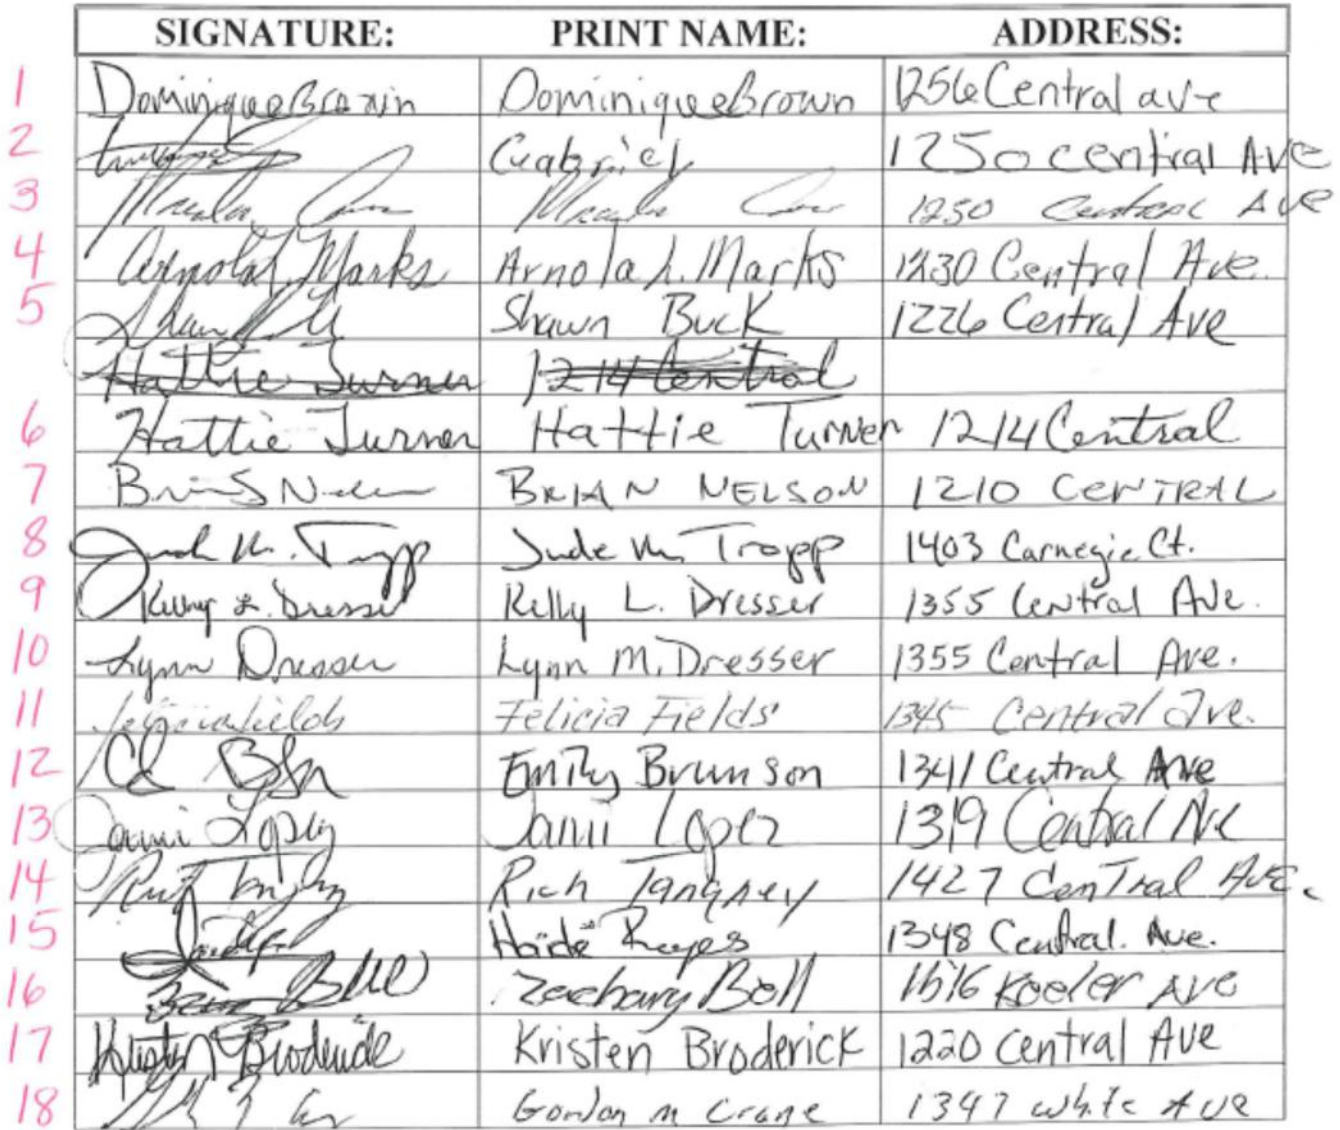 SIGNATURE: PRINT NAME: ADDRESS:
1 Dominique Brown Dominique Brown 1256 Central ave
2 Gabriel 1250 central Ave
3 1250 Central Ave
4 Arnola L Marks Arnola L. Marks 1230 Central Ave.
5 Shawn Buck 1226 Central Ave
Hattie Turner 1214 Central
6 Hattie Turner Hattie Turner 1214 Central
7 BRIAN NELSON 1210 CENTRAL
8 Jude M. Tropp Jude M. Tropp 1403 Carnegie Ct.
9 Kelly L. Dresser Kelly L. Dresser 1355 Central Ave.
10 Lynn Dresser Lynn M. Dresser 1355 Central Ave.
11 Felicia Fields Felicia Fields 1345 Central ave.
12 Emily Brunson 1341 Central Ave
13 Jami Lopez Jami Lopez 1319 Central Ave
14 Rich Tangney 1427 Central AVE.
15 Haidé Reyes 1348 Central. Ave.
16 Bell Zachary Bell 1616 Keeler Ave
17 Kristen Broderick Kristen Broderick 1220 Central Ave
18 Gordon m Crane 1347 White Ave